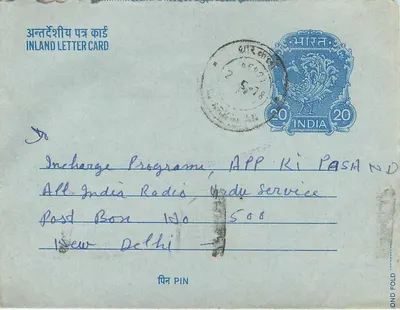 अन्तर्देशीय पत्र कार्ड
INLAND LETTER CARD
भारत
20 INDIA 20
To
Incharge Programi, APP KI PASAND
All India Radio, Urdu Service
Post Box No 500
New Delhi -
पिन PIN
OND FOLD